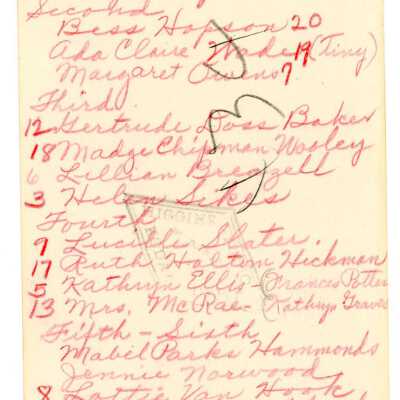 Second
Bess Hopson 20
Ada Claire Wade 19 (Tiny)
Margaret Owens 7
Third
12 Gertrude Doss Baker
18 Madge Chipman Wooley
6 Lillian Breazell
3 Helen Sikes
Fourth
9 Lucille Slater.
17 Ruth Holton Hickman
5 Kathryn Ellis - Frances Potter
13 Mrs. McRae - Kathryn Graves
Fifth - Sixth
Mabil Parks Hammonds
Jennie Norwood
8 Lottie Van Hook